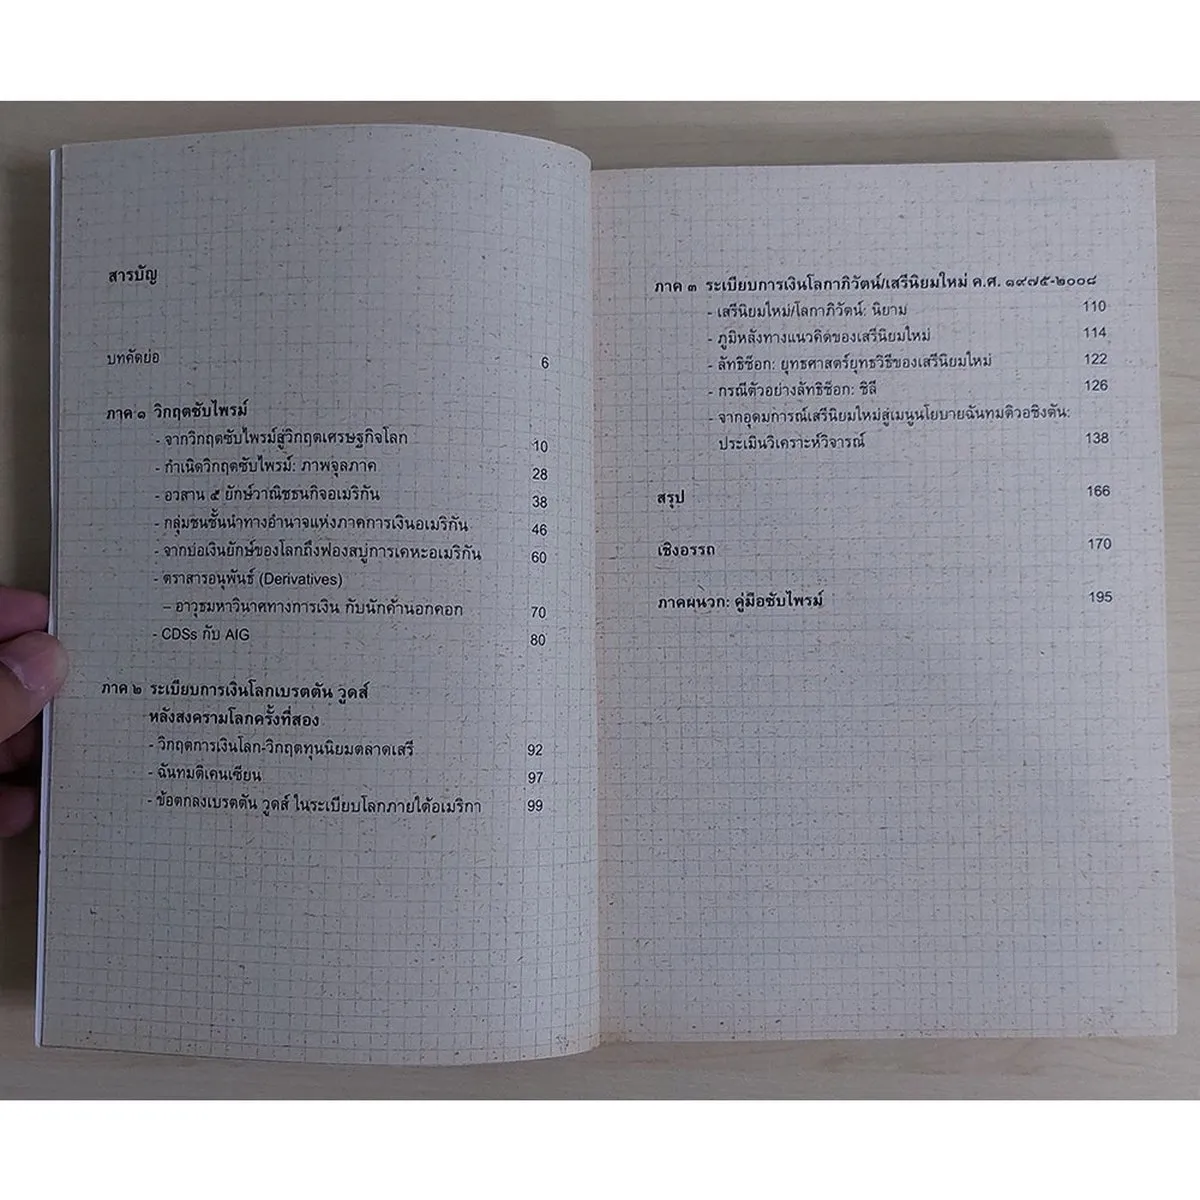 สารบัญ
บทคัดย่อ 6
ภาค ๑ วิกฤตซับไพรม์
- จากวิกฤตซับไพรม์สู่วิกฤตเศรษฐกิจโลก 10
- กำเนิดวิกฤตซับไพรม์: ภาพจุลภาค 28
- อวสาน ๕ ยักษ์วาณิชธนกิจอเมริกัน 38
- กลุ่มชนชั้นนำทางอำนาจแห่งภาคการเงินอเมริกัน 46
- จากบ่อเงินยักษ์ของโลกถึงฟองสบู่การเคหะอเมริกัน 60
- ตราสารอนุพันธ์ (Derivatives)
– อาวุธมหาวินาศทางการเงิน กับนักค้านอกคอก 70
- CDSs กับ AIG 80
ภาค ๒ ระเบียบการเงินโลกเบรตตัน วูดส์
หลังสงครามโลกครั้งที่สอง
- วิกฤตการเงินโลก-วิกฤตทุนนิยมตลาดเสรี 92
- ฉันทมติเคนเซียน 97
- ข้อตกลงเบรตตัน วูดส์ ในระเบียบโลกภายใต้อเมริกา 99
ภาค ๓ ระเบียบการเงินโลกาภิวัตน์/เสรีนิยมใหม่ ค.ศ. ๑๙๗๕-๒๐๐๘
- เสรีนิยมใหม่/โลกาภิวัตน์: นิยาม 110
- ภูมิหลังทางแนวคิดของเสรีนิยมใหม่ 114
- ลัทธิช็อก: ยุทธศาสตร์ยุทธวิธีของเสรีนิยมใหม่ 122
- กรณีตัวอย่างลัทธิช็อก: ชิลี 126
- จากอุดมการณ์เสรีนิยมใหม่สู่เมนูนโยบายฉันทมติวอชิงตัน:
ประเมินวิเคราะห์วิจารณ์ 138
สรุป 166
เชิงอรรถ 170
ภาคผนวก: คู่มือซับไพรม์ 195